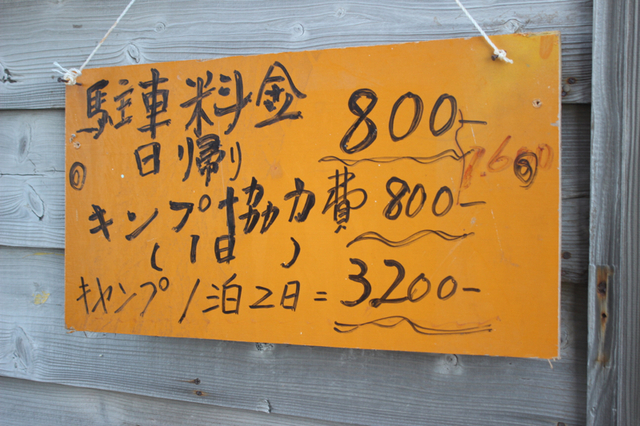 駐車料金 800-
日帰り
キンプ協力費 800-
(1日)
1.600
キャンプ1泊2日=3.200-